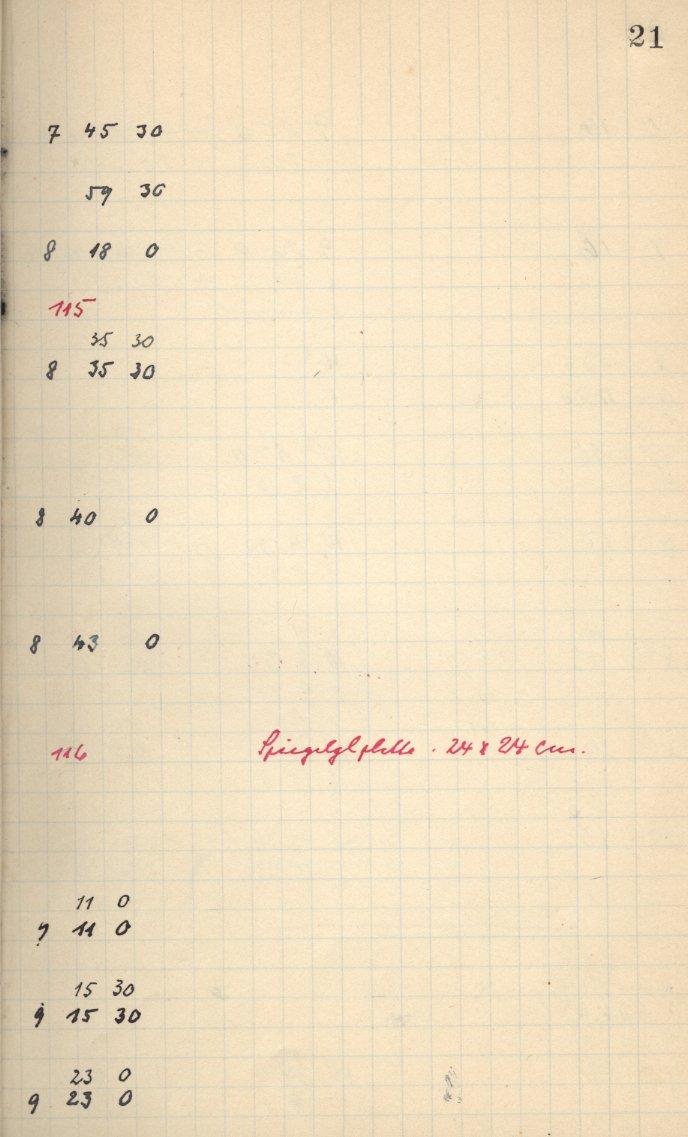 21
7 45 30
59 30
8 18 0
115
35 30
8 35 30
8 40 0
8 43 0
116 Spiegelglplatte. 24 x 24 cm.
11 0
9 11 0
15 30
9 15 30
23 0
9 23 0